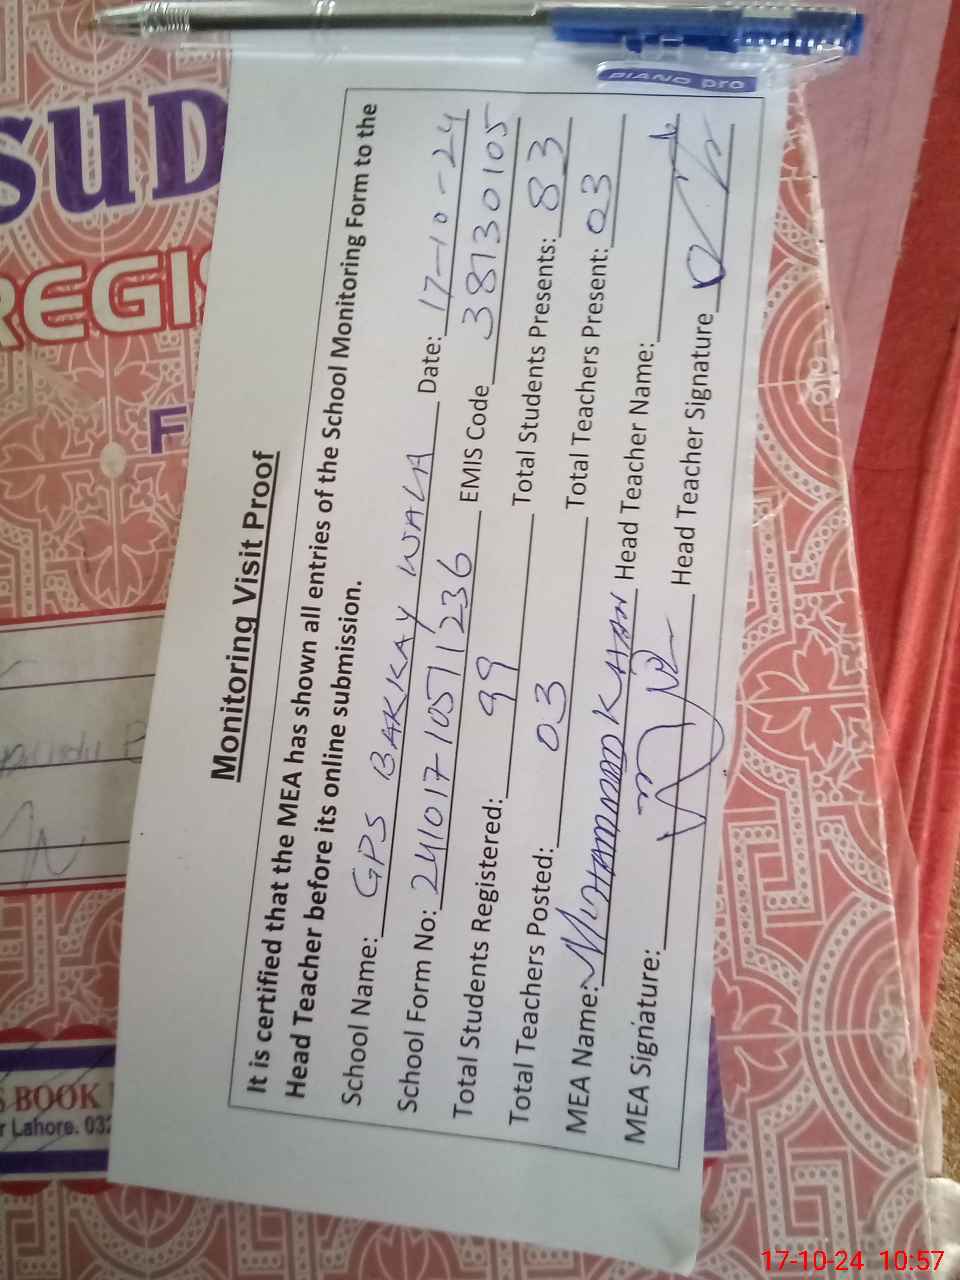 PIANO pro
SUD
REGIS
F
BOOK
r Lahore. 032
Monitoring Visit Proof
It is certified that the MEA has shown all entries of the School Monitoring Form to the
Head Teacher before its online submission.
School Name: GPS BAKKAY WALA Date: 17-10-24
School Form No: 241017-1057 1236 EMIS Code 38130105
Total Students Registered: 99 Total Students Presents: 83
Total Teachers Posted: 03 Total Teachers Present: 03
MEA Name: MUHAMMAD KHAN Head Teacher Name:
MEA Signature: Head Teacher Signature
17-10-24 10:57